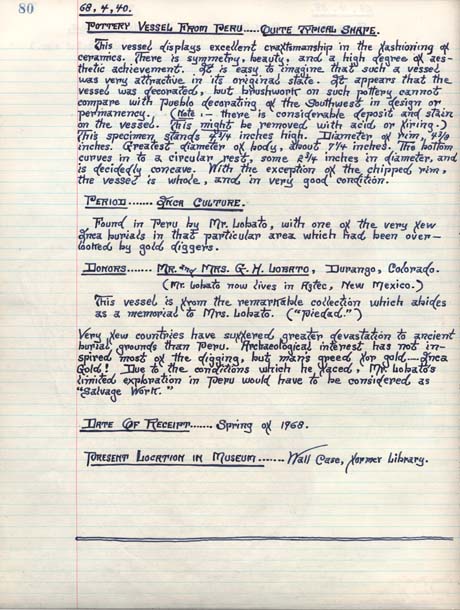 80
68,4,40.
Pottery Vessel From Peru.....Quite Typical Shape.
This vessel displays excellent craftsmanship in the fashioning of
ceramics. There is symmetry, beauty, and a high degree of aes-
thetic achievement. It is easy to imagine that such a vessel
was very attractive in its original state. It appears that the
vessel was decorated, but brushwork on such pottery cannot
compare with Pueblo decorating of the Southwest in design or
permanency. (Note :- there is considerable deposit and stain
on the vessel. This might be removed with acid or firing.)
This specimen stands inches high. Diameter of rim,
inches. Greatest diameter of body, about 7 1/4 inches. The bottom
curves in to a circular rest, some 2 1/4 inches in diameter, and
is decidedly concave. With the exception of the chipped rim,
the vessel is whole, and in very good condition.
Period.......Inca Culture.
Found in Peru by Mr. Lobato, with one of the very few
Inca burials in that particular area which had been over-
looked by gold diggers.
Donors.......Mr. and Mrs. G. H. Lobato, Durango, Colorado.
(Mr. Lobato now lives in Aztec, New Mexico.)
This vessel is from the remarkable collection which abides
as a memorial to Mrs. Lobato. ("Piedad.")
Very few countries have suffered greater devastation to ancient
burial grounds than Peru. Archaeological interest has not in-
spired most of the digging, but man's greed for gold—Inca
Gold! Due to the conditions which he faced, Mr. Lobato's
limited exploration in Peru would have to be considered as
"Salvage Work."
Date Of Receipt......Spring of 1968.
Present Location in Museum.......Wall Case, former Library.